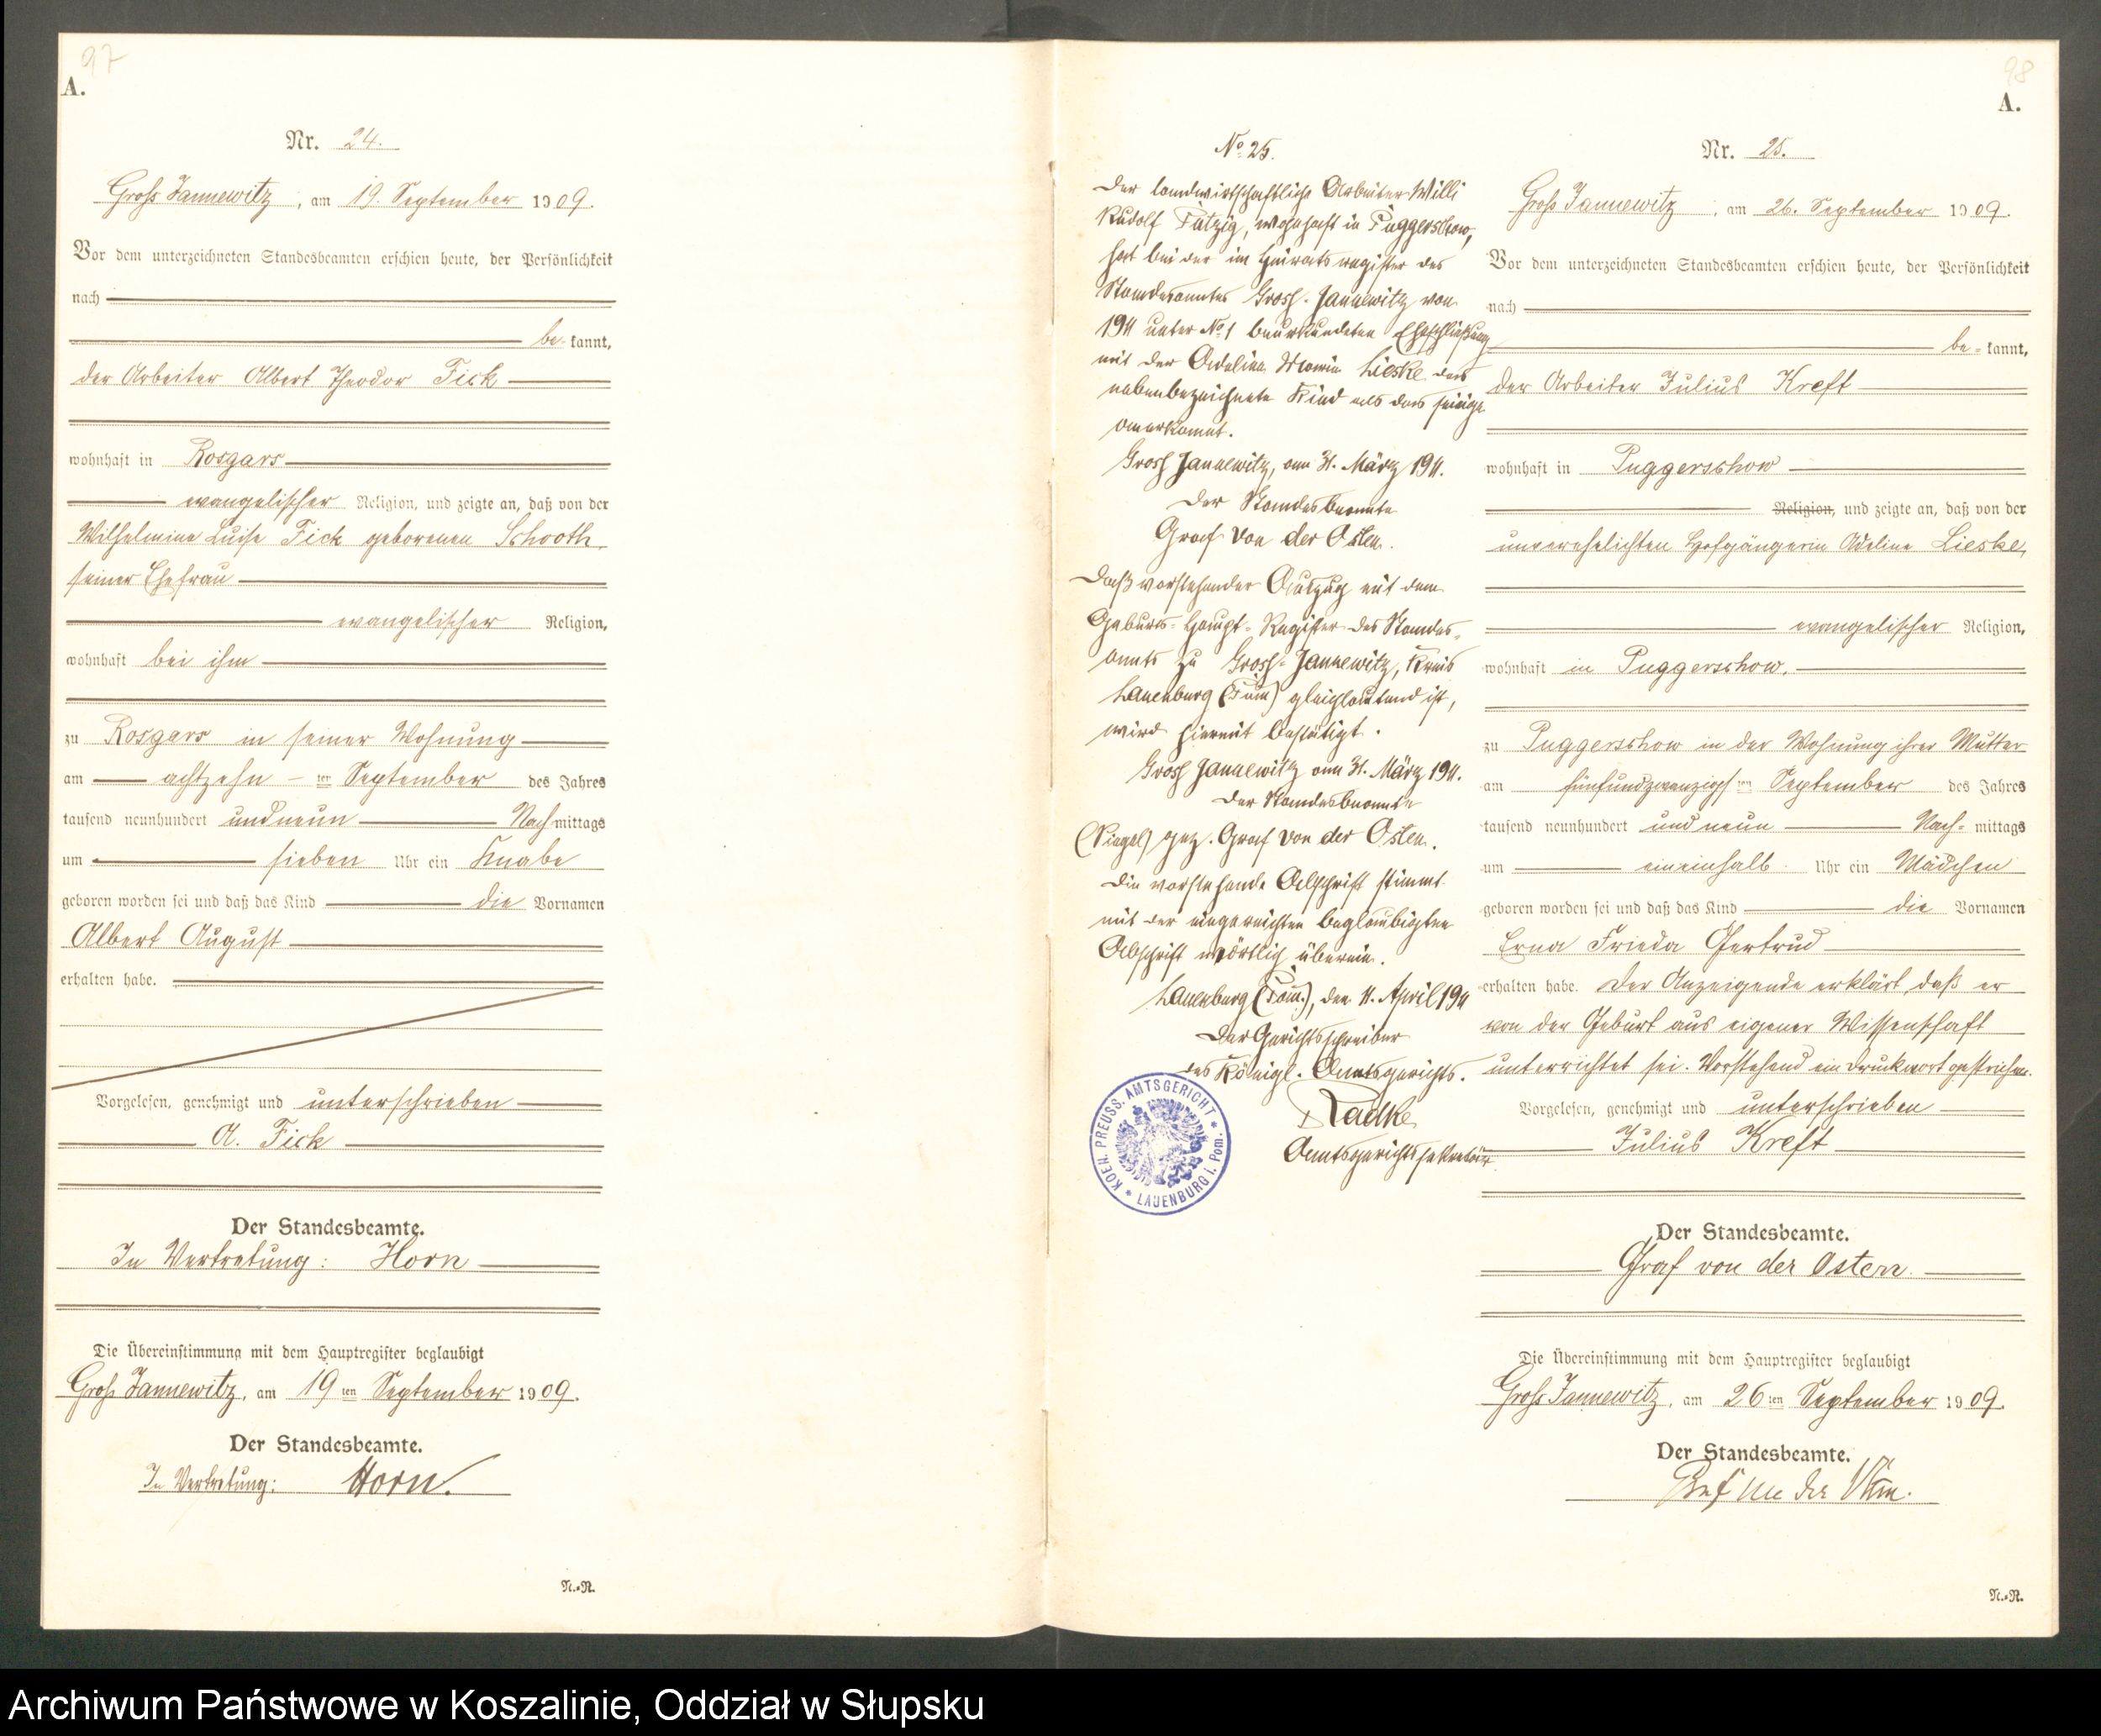 97
A.
Nr. 24.
Groß Jannewitz, am 19. September 1909.
Vor dem unterzeichneten Standesbeamten erschien heute, der Persönlichkeit
nach
be kannt,
der Arbeiter Albert Theodor Fick
wohnhaft in Rosgars
evangelischer Religion, und zeigte an, daß von der
Wilhelmine Luise Fick geborenen Schooth,
seiner Ehefrau
evangelischer Religion,
wohnhaft bei ihm
zu Rosgars in seiner Wohnung
am achtzehn ten September des Jahres
tausend neunhundert und neun Nach mittags
um sieben Uhr ein Knabe
geboren worden sei und daß das Kind die Vornamen
Albert August
erhalten habe.
Vorgelesen, genehmigt und unterschrieben
A. Fick
Der Standesbeamte.
In Vertretung: Horn
Die Übereinstimmung mit dem Hauptregister beglaubigt
Groß Jannewitz, am 19 ten September 1909.
Der Standesbeamte.
In Vertretung: Horn.
N.=R.
No 25.
Der landwirtschaftliche Arbeiter Willi
Rudolf Pätzig, wohnhaft in Puggerschow,
hat bei der im Heiratsregister des
Standesamtes Gross-Jannewitz von
1911 unter No 1 beurkundeten Eheschließung
mit der Adeline Marie Lieske das
nebenbezeichnete Kind als das seinige
anerkannt.
Gross Jannewitz, am 31. März 1911.
Der Standesbeamte
Graf von der Osten.
Daß vorstehender Auszug mit dem
Geburts-Haupt-Register des Standes-
amts zu Gross-Jannewitz, Kreis
Lauenburg (Pom) gleichlautend ist,
wird hiermit bestätigt.
Gross Jannewitz am 31. März 1911.
Der Standesbeamte
(Siegel) gez. Graf von der Osten.
Die vorstehende Abschrift stimmt
mit der eingereichten beglaubigten
Abschrift wörtlich überein.
Lauenburg (Pom.), den 11. April 1911
Der Gerichtsschreiber
des Königl. Amtsgerichts.
Radke
Amtsgerichtssekretär.
KOEN. PREUSS. AMTSGERICHT * LAUENBURG i. Pom. *
98
A.
Nr. 25.
Groß Jannewitz, am 26. September 1909.
Vor dem unterzeichneten Standesbeamten erschien heute, der Persönlichkeit
nach
be= kannt,
der Arbeiter Julius Kreft
wohnhaft in Puggerschow
Religion, und zeigte an, daß von der
unverehelichten Hofgängerin Adeline Lieske,
evangelischer Religion,
wohnhaft in Puggerschow,
zu Puggerschow in der Wohnung ihrer Mutter
am fünfundzwanzigs ten September des Jahres
tausend neunhundert und neun Nach= mittags
um eineinhalb Uhr ein Mädchen
geboren worden sei und daß das Kind die Vornamen
Erna Frieda Gertrud
erhalten habe. Der Anzeigende erklärt, daß er
von der Geburt aus eigener Wissenschaft
unterrichtet sei. Vorstehend ein Druckwort gestrichen.
Vorgelesen, genehmigt und unterschrieben
Julius Kreft
Der Standesbeamte.
Graf von der Osten.
Die Übereinstimmung mit dem Hauptregister beglaubigt
Groß Jannewitz, am 26 ten September 1909.
Der Standesbeamte.
Graf von der Osten.
N.=R.
Archiwum Państwowe w Koszalinie, Oddział w Słupsku